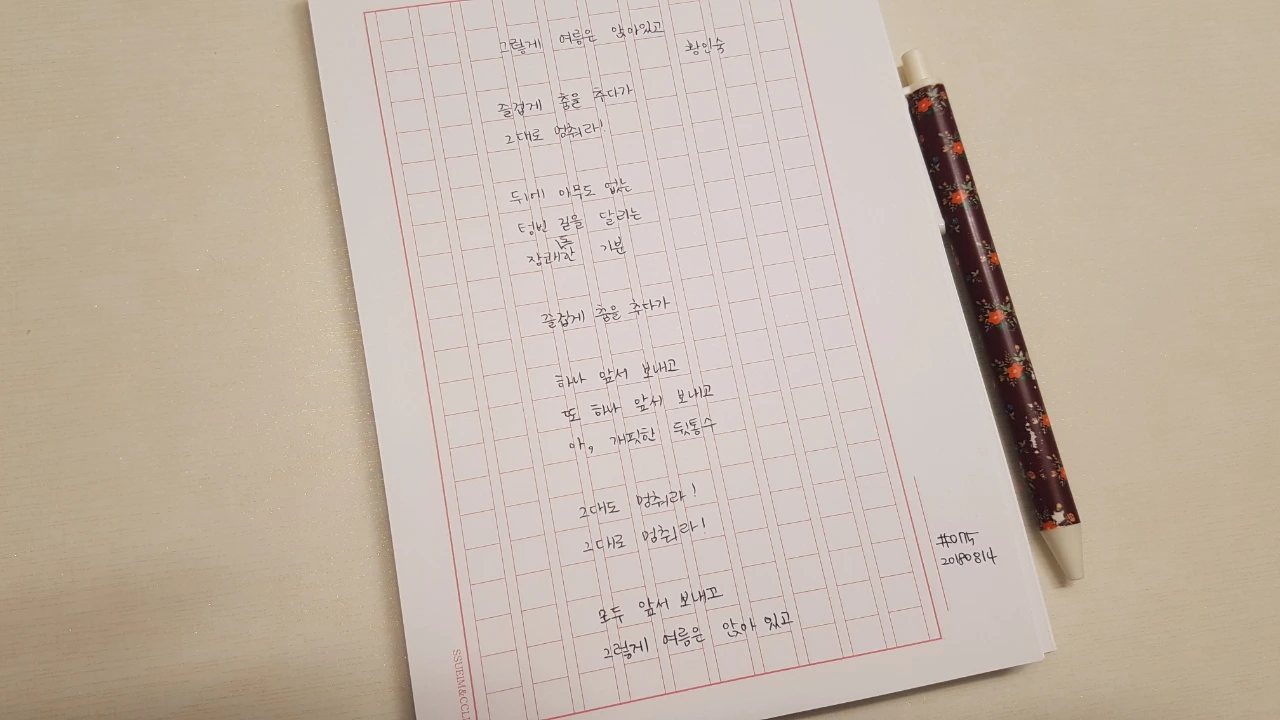 그렇게 여름은 앉아있고
황인숙
즐겁게 춤을 추다가
그대로 멈춰라!
뒤에 아무도 없는
텅빈 길을 달리는
장쾌한 기분
즐겁게 춤을 추다가
하나 앞서 보내고
또 하나 앞서 보내고
아, 개핏한 뒷통수
그대도 멈춰라!
그대로 멈춰라!
모두 앞서 보내고
그렇게 여름은 앉아 있고
#075
20180814